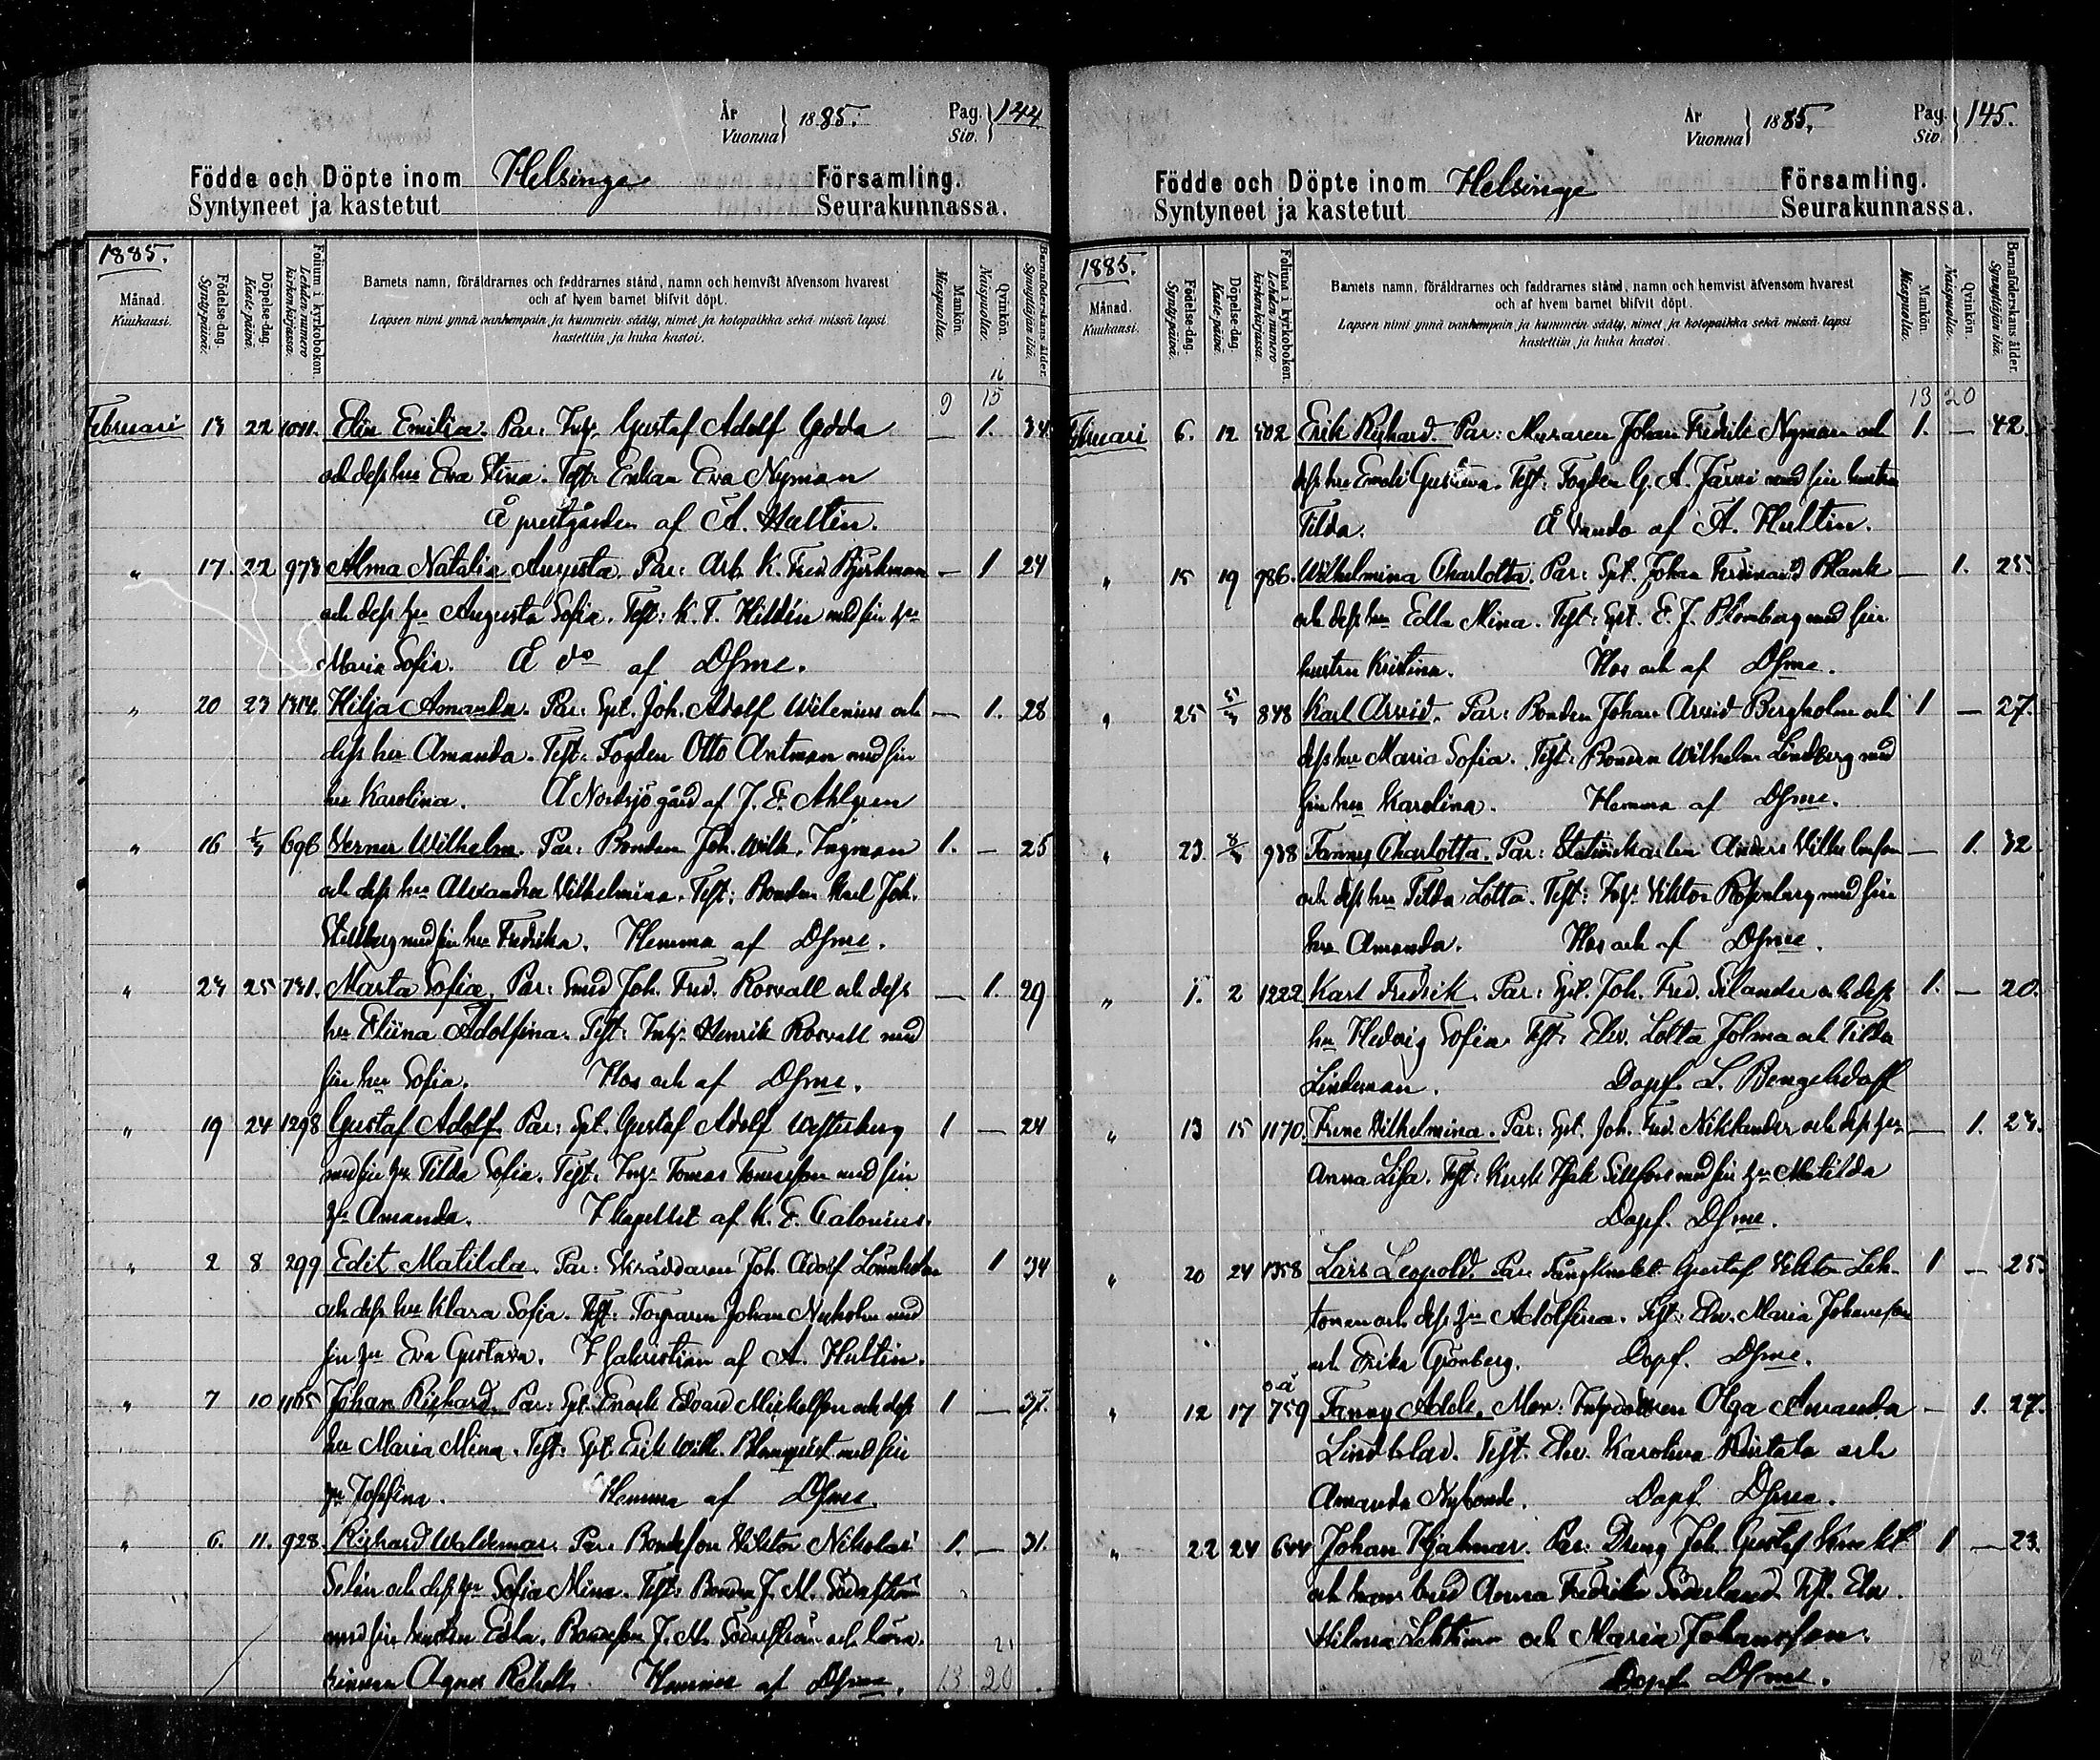 År Vuonna } 1885. Pag. Siv. } 144
Födde och Döpte inom Helsinge Församling.
Syntyneet ja kastetut Seurakunnassa.
1885.
Månad. Kuukausi.
Födelse-dag. Synty-päivä.
Döpelse-dag. Kaste-päivä.
Folium i kyrkoboken. Lehden numero kirkonkirjassa.
Barnets namn, föräldrarnes och faddrarnes stånd, namn och hemvist äfvensom hvarest
och af hvem barnet blifvit döpt.
Lapsen nimi ynnä vanhempain ja kummein sääty, nimet ja kotopaikka sekä missä lapsi
kastettiin ja kuka kastoi.
Mankön. Miespuolia.
Qvinkön. Naispuolia.
Barnaföderskans ålder. Synnyttäjän ikä.
16
9 15
Februari 13 22 1011. Elin Emilia. Par: Inh. Gustaf Adolf Gödda — 1. 34
och dess hu Eva Stina. Test: Enkan Eva Nyman
Å prestgården af A. Hultin.
" 17. 22 973 Alma Natalia Augusta. Par: Arb. K. Fred Björkman — 1 24
och dess hu Augusta Sofia. Test: K. F. Hildén med sin hu
Maria Sofia. Å do af Dsme.
" 20 23 1314. Hilja Amanda. Par: Spt. Joh. Adolf Wilenius och — 1. 28
dess hu Amanda. Test: Fogden Otto Antman med sin
hu Karolina. Å Nordsjö gård af J. E. Ahlgren
" 16 1/3 696 Verner Wilhelm. Par: Bonden Joh. Wilh. Ingman 1. — 25
och dess hu Alexandra Vilhelmina. Test: Bonden Karl Joh.
Stillberg med sin hu Fredrika. Hemma af Dsme.
" 23 25 731. Marta Sofia. Par: Smed Joh. Fred. Rosvall och dess — 1. 29
hu Eliina Adolfina. Test: Inh. Henrik Rosvall med
sin hu Sofia. Hos och af Dsme.
" 19 24 1298 Gustaf Adolf. Par: Spt. Gustaf Adolf Westerberg 1 — 24
med sin hu Tilda Sofia. Test: Inh. Tomas Tomasson med sin
hu Amanda. I kapellet af K. E. Calonius.
" 2 8 299 Edit Matilda. Par: Skräddaren Joh. Adolf Lönnholm 1 34
och dess hu Klara Sofia. Test: Torparen Johan Nyholm med
sin hu Eva Gustava. I sakristian af A. Hultin.
" 7 10 1165 Johan Richard. Par: Spt. Enock Edvard Mickelson och dess 1 — 37.
hu Maria Mina. Test: Spt. Erik Wilh. Blomqvist med sin
hu Josefina. Hemma af Dsme.
" 6. 11. 928. Richard Waldemar. Par: Bondeson Viktor Nikolai 1. — 31.
Selin och dess hu Sofia Mina. Test: Bonden J. M. Söderström
med sin hustru Edla. Bondeson J. M. Söderström och lära-
rinnan Agnes Hemma af Dsme. 13 20
År Vuonna } 1885. Pag. Siv. } 145.
Födde och Döpte inom Helsinge Församling.
Syntyneet ja kastetut Seurakunnassa.
1885.
Månad. Kuukausi.
Födelse-dag. Synty-päivä.
Döpelse-dag. Kaste-päivä.
Folium i kyrkoboken. Lehden numero kirkonkirjassa.
Barnets namn, föräldrarnes och faddrarnes stånd, namn och hemvist äfvensom hvarest
och af hvem barnet blifvit döpt.
Lapsen nimi ynnä vanhempain ja kummein sääty, nimet ja kotopaikka sekä missä lapsi
kastettiin ja kuka kastoi.
Mankön. Miespuolia.
Qvinkön. Naispuolia.
Barnaföderskans ålder. Synnyttäjän ikä.
13 20
Februari 6. 12 402 Erik Richard. Par: Muraren Johan Fredrik Nyman och 1. — 42.
dess hu Emeli Gustava. Test: Fogden G. A. Järvi med sin hustru
Tilda. Å Vanda af A. Hultin.
" 15 19 986. Wilhelmina Charlotta. Par: Spt. Johan Ferdinand Blank — 1. 25
och dess hu Edla Mina. Test: Spt. E. J. Blomberg med sin
hustru Kristina. Hos och af Dsme.
" 25 5/3 848 Karl Arvid. Par: Bonden Johan Arvid Bergholm och 1 — 27.
dess hu Maria Sofia. Test: Bonden Wilhelm Lindberg med
sin hu Karolina. Hemma af Dsme.
" 23 8/3 938 Fanny Charlotta. Par: Stationskarlen Anders Vilhelmson — 1. 32
och dess hu Tilda Lotta. Test: Inh. Viktor Rosenberg med sin
hu Amanda. Hos och af Dsme.
" 1. 2 1222 Karl Fredrik. Par: Spt. Joh. Fred. Silander och dess 1. — 20.
hu Hedvig Sofia. Test: Elev. Lotta Jolma och Tilda
Lindeman. Dopf. L. Bengelsdorff
" 13 15 1170. Irene Vilhelmina. Par: Spt. Joh. Fred. Niklander och dess hu — 1. 23.
Anna Lisa. Test: Kusk Isak Sillfors med sin hu Matilda
Dopf. Dsme.
" 20 24 1358 Lars Leopold. Par: Gustaf Viktor Leh- 1 — 25
tonen och dess hu Adolfina. Test: Elev. Maria Johansson
och Erika Grönberg. Dopf. Dsme.
" 12 17 o.ä. 759 Fanny Adele. Mor: Inhysdottren Olga Amanda — 1. 27.
Lindblad. Test. Elev. Karolina Rintala och
Amanda Nybonde. Dopf. Dsme.
" 22 24 644 Johan Hjalmar. Par: Dreng Joh. Gustaf 1 — 23.
och hans brud Anna Fredrika Söderlund. Test. Elev.
Hilma Lehtinen och Maria Johansson.
Dopf. Dsme.